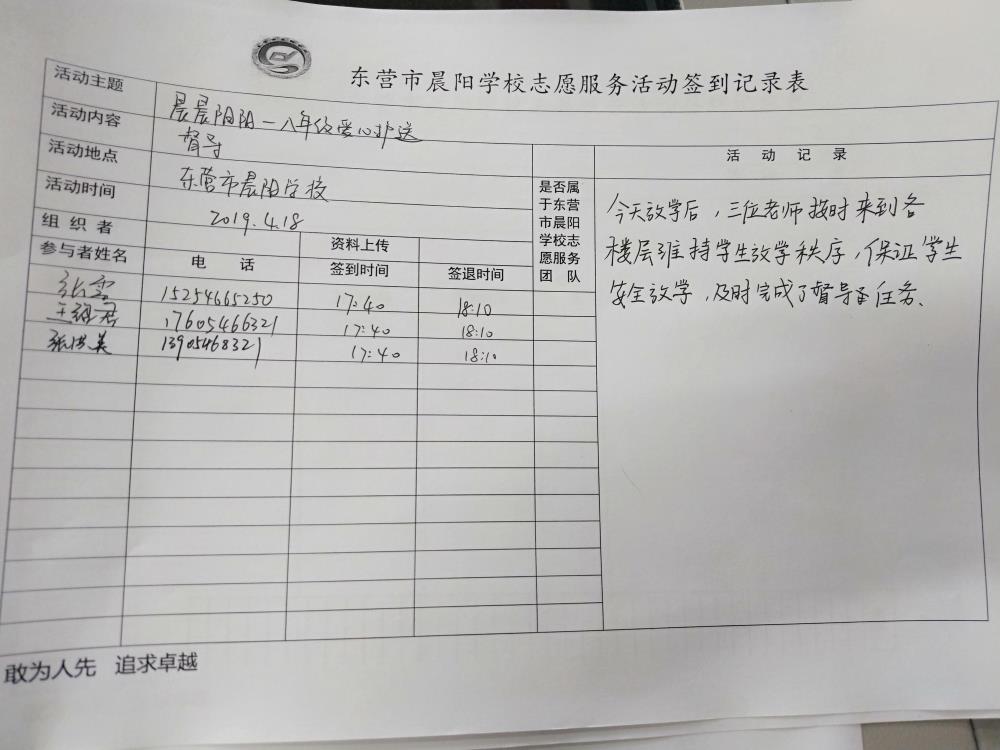 东营市晨阳学校志愿服务活动签到记录表
活动主题 晨晨阳阳一八年级爱心护送
活动内容 督导
活动地点 东营市晨阳学校
活动时间 2019.4.18
组织者 资料上传
参与者姓名 电话 签到时间 签退时间
是否属
于东营
市晨阳
学校志
愿服务
团队
张雪 15254665250 17:40 18:10
17605466321 17:40 18:10
张洪美 13905468321 17:40 18:10
活动记录
今天放学后,三位老师按时来到各
楼层维持学生放学秩序,保证学生
安全放学,及时完成了督导任务.
敢为人先 追求卓越